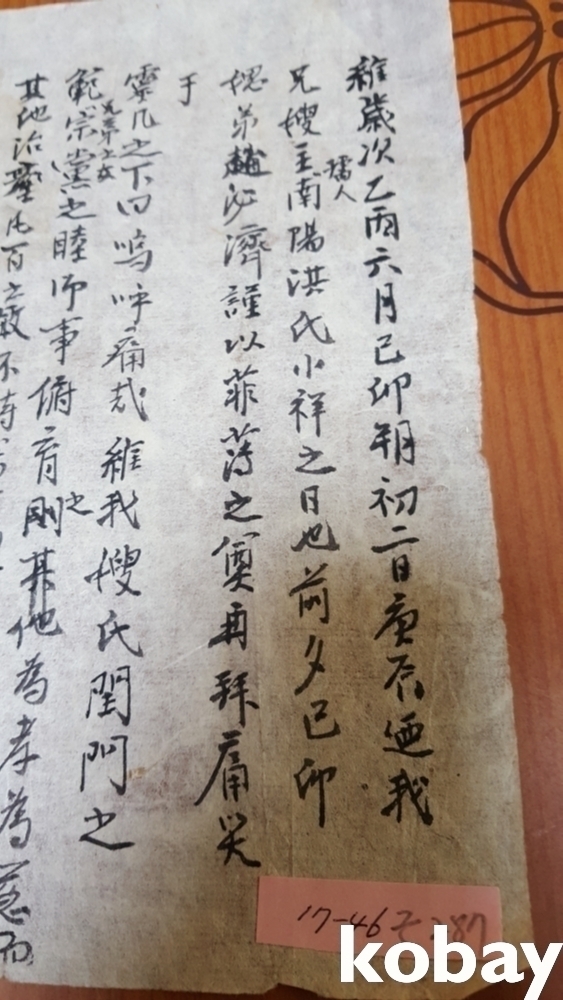 維歲次乙丙六月己卯朔初二日庚辰迺我
兄嫂孺人南陽洪氏小祥之日也前夕己卯
媤弟 必濟謹以菲薄之奠再拜痛哭
于
靈几之下曰嗚呼痛哉維我嫂氏閨門之
範宗黨之睦 事俯育之 其他為孝為慈而
其他治 凡百之 不待
17-46 287
kobay